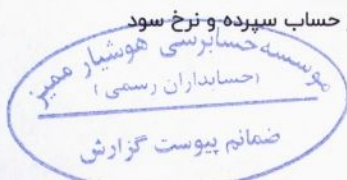 حساب سپرده و نرخ سود
موسسه حسابرسی هوشیار ممیز
(حسابداران رسمی)
ضمائم پیوست گزارش